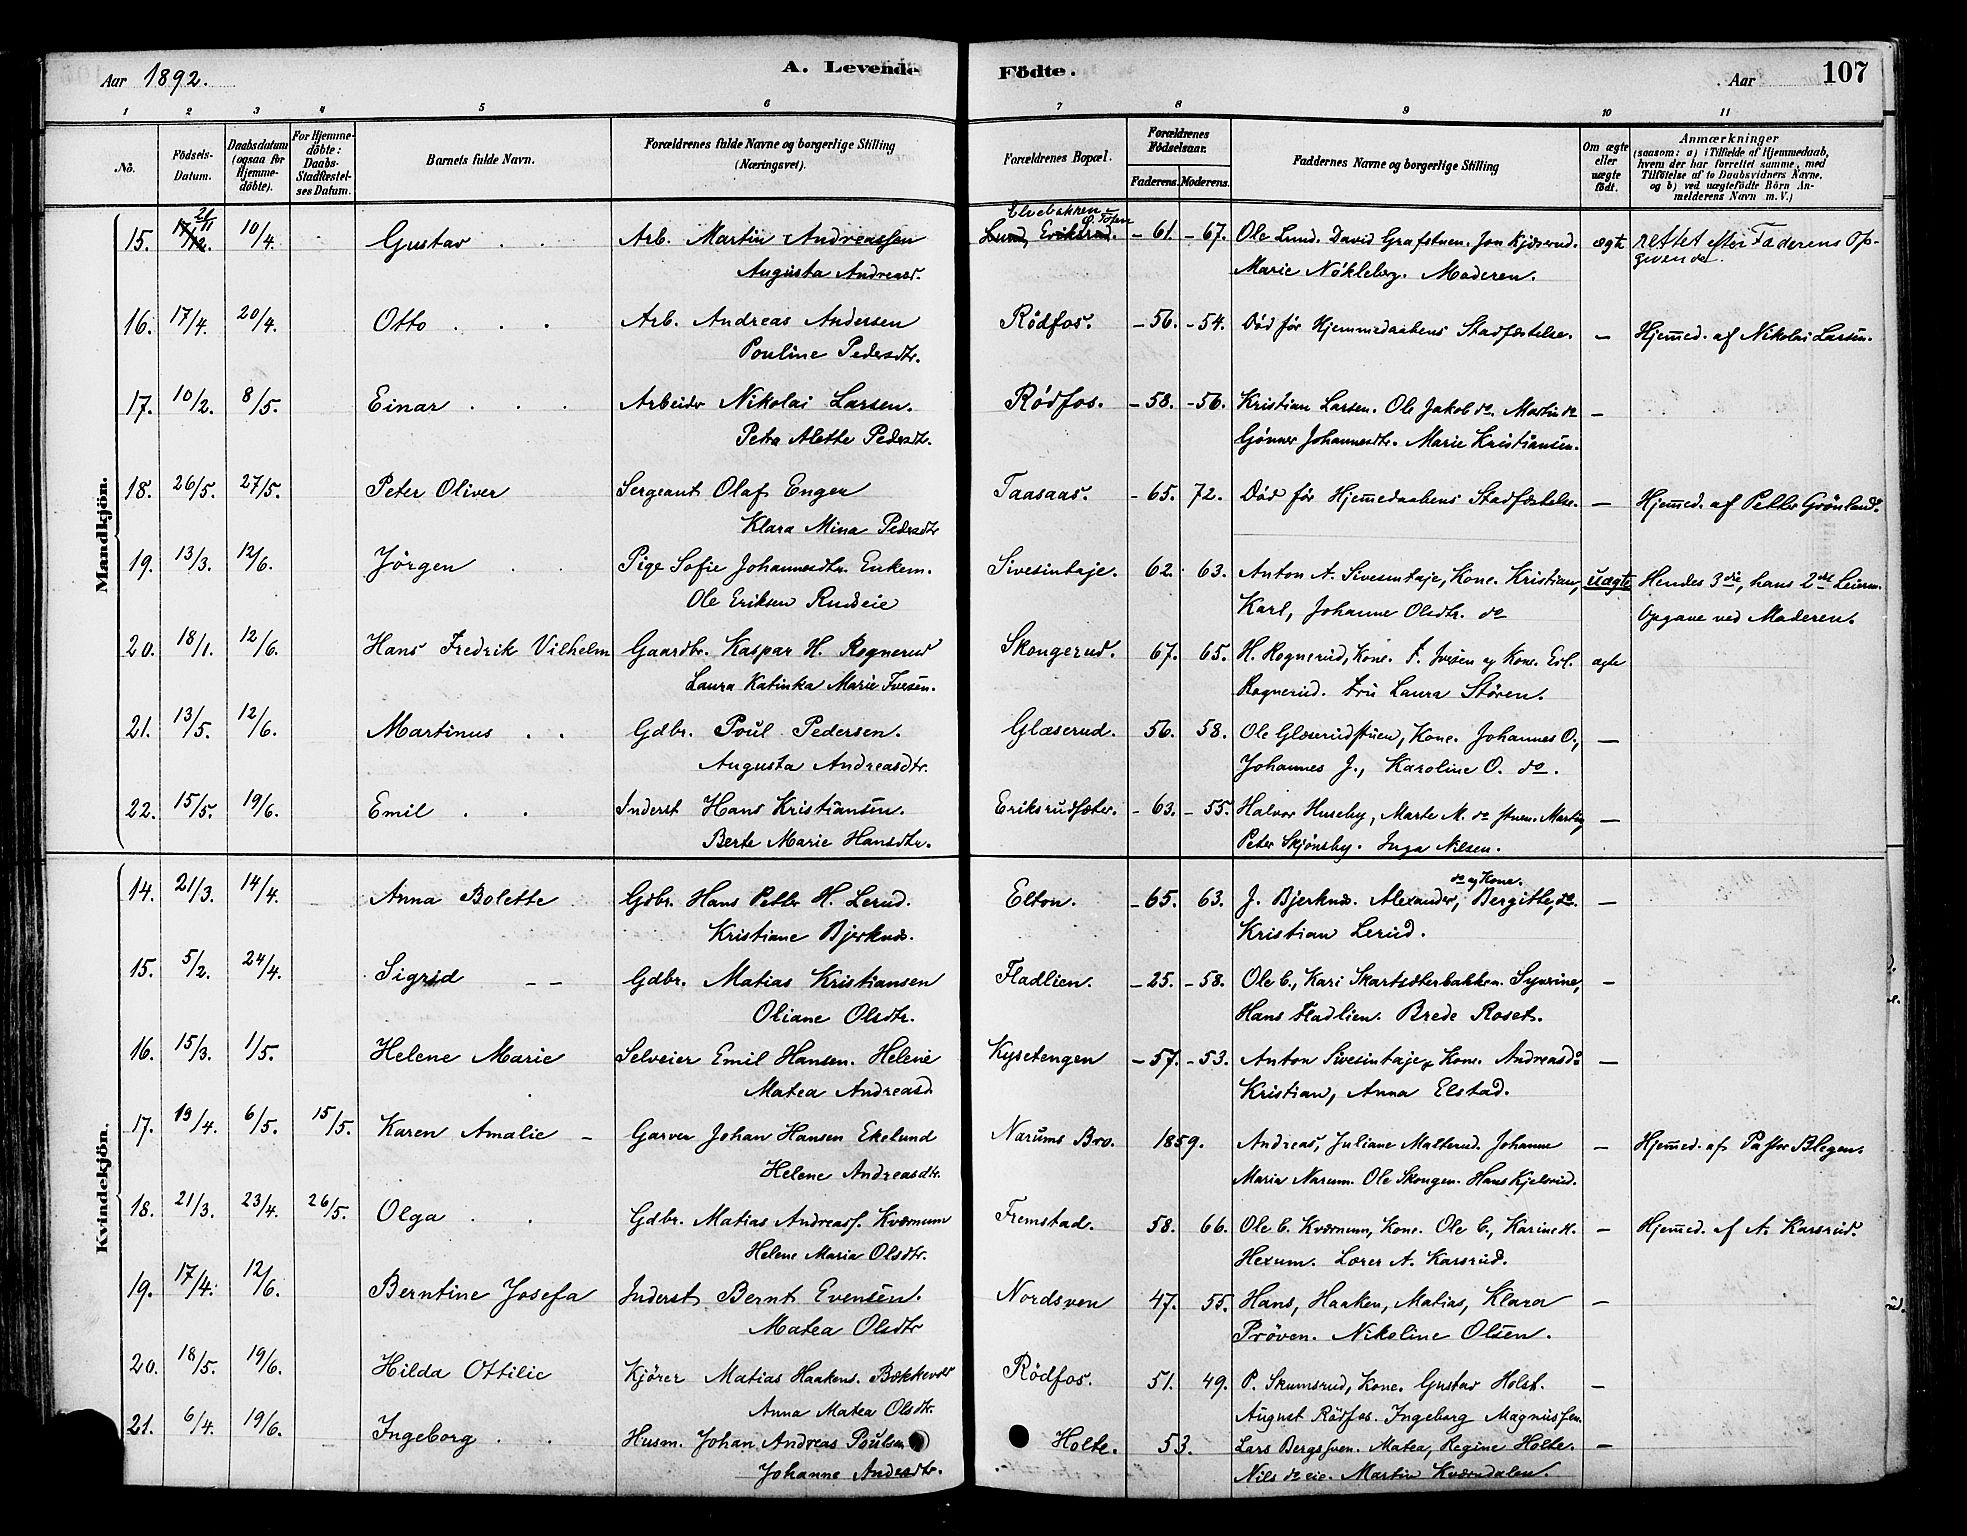 Aar 1892. A. Levende Födte. Aar 107
1 2 3 4 5 6 7 8 9 10 11
No. Födsels-Datum. Daabsdatum (ogsaa for Hjemme-döbte). For Hjemme-döbte: Daabs-Stadfæstel-ses Datum. Barnets fulde Navn. Forældrenes fulde Navne og borgerlige Stilling (Næringsvei). Forældrenes Bopæl. Forældrenes Födselsaar. Faderens. Moderens. Faddernes Navne og borgerlige Stilling Om ægte eller uægte födt. Anmærkninger (saasom: a) i Tilfælde af Hjemmedaab, hvem der har forrettet samme, med Tilföielse af to Daabsvidners Navne, og b) ved uægtefödte Börn An-melderens Navn m. V.)
Mandkjön.
15. 10/4. Gustav . . Arb. Martin Andreassen Lund, Eriksrud. – 61. – 67. Ole Lund. David Grafstuen. Jon Kjöserud. ægte rettet efter Faderens Op-
Augusta Andreasd. Marie Nökleberg. Moderen. givende.
16. 17/4. 20/4. Otto . . . Arb. Andreas Andersen Rödfos. – 56. – 54. Död för Hjemmedaabens Stadfæstelse. – Hjemed. af Nikolai Larsen.
Pouline Pedersdtr.
17. 10/2. 8/5. Einar . . . Arbeider Nikolai Larsen. Rödfos. – 58. – 56. Kristian Larsen. Ole Jakob do. Martin do –
Petra Alette Pedersdtr. Gönner Johannesdtr. Marie Kristiansen.
18. 26/5. 27/5. Peter Oliver Sergeant Olaf Enger Taasaas. – 65. 72. Död för Hjemedaabens Stadfæstelse. – Hjemed. af Petter Grönland.
Klara Mina Pedersdtr
19. 13/3. 12/6. Jörgen . . Pige Sofie Johannesdtr. Enkem. Sivesintaje. 62. 63. Anton A. Sivesintaje, Kone. Kristian, uægte Hendes 3die, hans 2det Leierm.
Ole Eriksen Rudeie Karl, Johanne Olsdtr. do Opgave ved Moderen.
20. 18/1. 12/6. Hans Fredrik Vilhelm Gaardbr. Kaspar H. Rognerud Skongerud. 67. 65. H. Rognerud, Kone. F. Iversen og Kone. Erl. ægte
Laura Katinka Marie Iversen. Rognerud. Fru Laura Stören.
21. 13/5. 12/6. Martinus . . Gdbr. Poul Pedersen. Glæserud. 56. 58. Ole Glæserudstuen, Kone. Johannes O., –
Augusta Andreasdtr. Johannes J., Karoline O. do.
22. 15/5. 19/6. Emil . . Inderst Hans Kristiansen. Eriksrudsæter. – 63. – 55. Halvor Huseby, Marte M. do stuen. Martin –
Berte Marie Hansdtr. Peter Skjönsby. Inga Nilsen.
Kvindekjön.
14. 21/3. 14/4. Anna Bolette Gdbr. Hans Petter H. Lerud. Elton. – 65. 63. J. Bjerknæs. Alexander, do og Kone. Bergitte, do. –
Kristiane Bjerknæs. Kristian Lerud.
15. 5/2. 24/4. Sigrid – – Gdbr. Matias Kristiansen Fladlien. – 25. – 58. Ole C., Kari Skartsæterbakken. Syverine, –
Oliane Olsdtr. Hans Fladlien. Brede Roset.
16. 15/3. 1/5. Helene Marie Selveier Emil Hansen. Helene Kysetengen – 57. – 53. Anton Sivesintaje, Kone. Andreas do –
Matea Andreasd. Kristian, Anna Elstad.
17. 19/4. 6/5. 15/5. Karen Amalie – Garver Johan Hansen Ekelund Narums Bro. 1859. Andreas, Juliane Malterud. Johanne – Hjemed. af Pastor Blegen.
Helene Andreasdtr. Maria Narum. Ole Skongen. Hans Kjelsrud.
18. 21/3. 23/4. 26/5. Olga . . Gdbr. Matias Andreass. Kværnum Fremstad. 58. 66. Ole C. Kværnum, Kone. Ole C., Karine H. – Hjemed. af A. Karsrud.
Helene Maria Olsdtr. Hexum. Lærer A. Karsrud.
19. 17/4. 12/6. Berntine Josefa Inderst Bernt Evensen. Nordsven 47. 55. Hans, Haaken, Matias, Klara –
Matea Olsdtr Pröven. Nikoline Olsen.
20. 18/5. 19/6. Hilda Ottilie Kjörer Matias Haakens. Rödfos. 51. 49. P. Skumsrud, Kone. Gustav Holst. –
Anna Matea Olsdtr. August Rödfos. Ingeborg Magnussen.
21. 6/4. 19/6. Ingeborg . . Husm. Johan Andreas Poulsen Holte. 53. Lars Bergssven. Matea, Regine Holte. –
Johanne Andersdtr. Nils do eie. Martin Kværndalen.